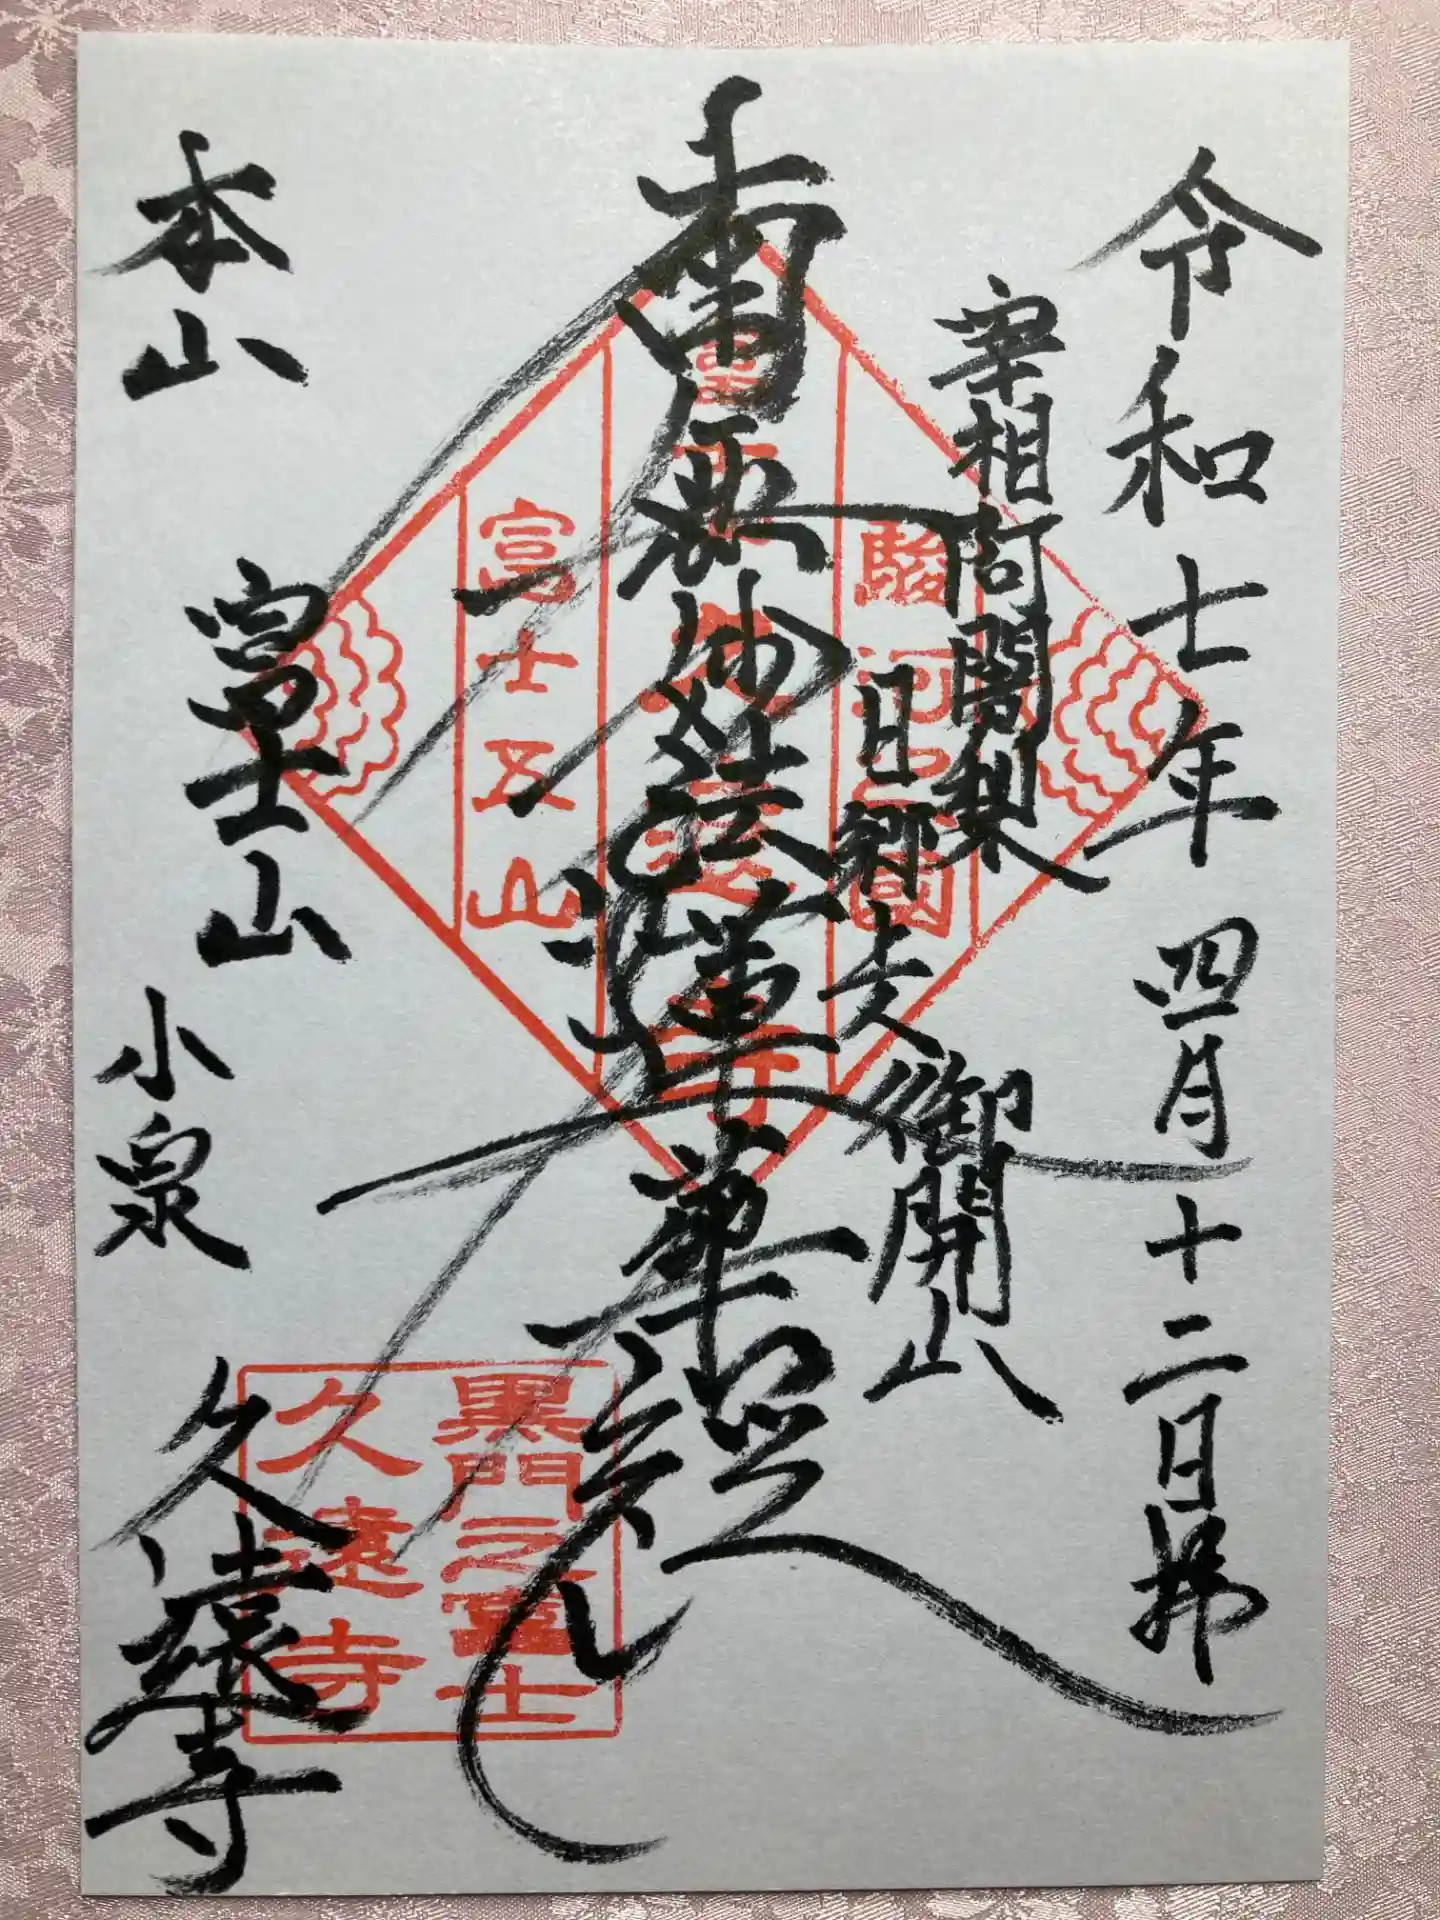 令和七年四月十二日拝
宰相阿闍梨
日郷支
御開山
南無妙法蓮華経
本山
富士山
小泉
久遠寺
駿河國
富士五山
黒門之富士
久遠寺